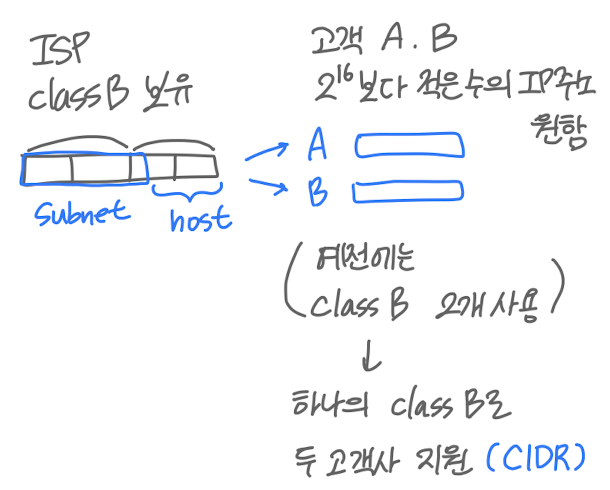 ISP
class B 보유
subnet
host
고객 A. B
2^16보다 적은 수의 IP주소
원함
A
B
( 예전에는
class B 2개 사용 )
↓
하나의 class B로
두 고객사 지원 (CIDR)